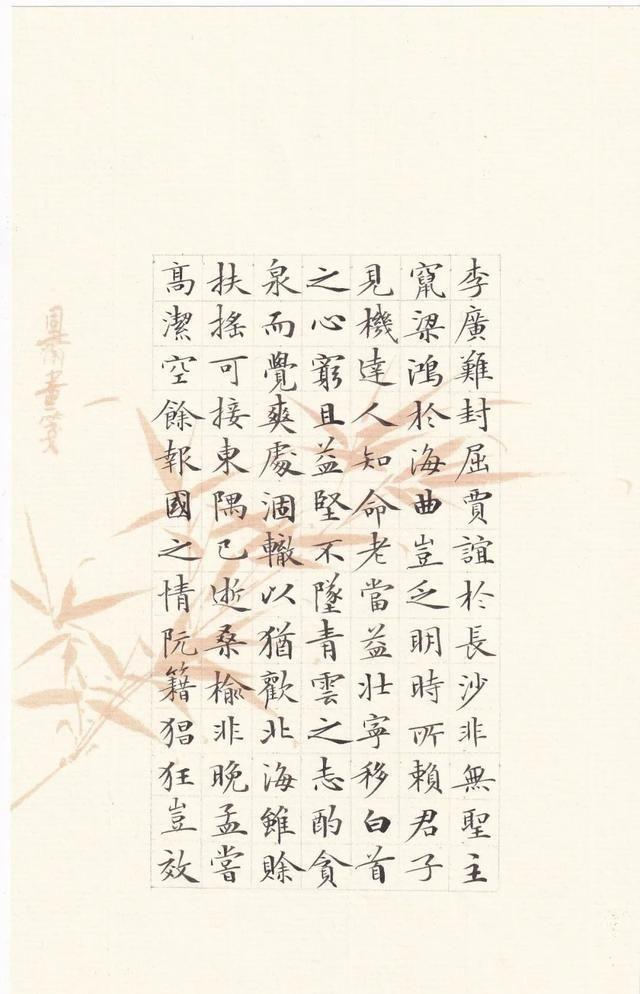 李廣難封屈賈誼於長沙非無聖主
竄梁鴻於海曲豈乏明時所賴君子
見機達人知命老當益壯寧移白首
之心窮且益堅不墜青雲之志酌貪
泉而覺爽處涸轍以猶歡北海雖賒
扶搖可接東隅已逝桑榆非晚孟嘗
高潔空餘報國之情阮籍猖狂豈效
畫箋